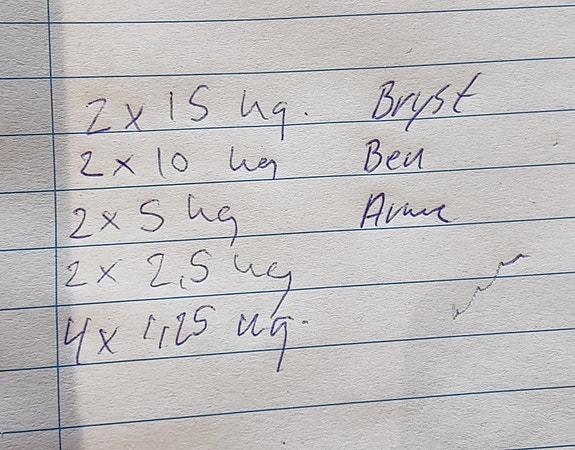 2 x 15 kg. Bryst
2 x 10 kg Ben
2 x 5 kg Arme
2 x 2,5 kg
4 x 1,25 kg.